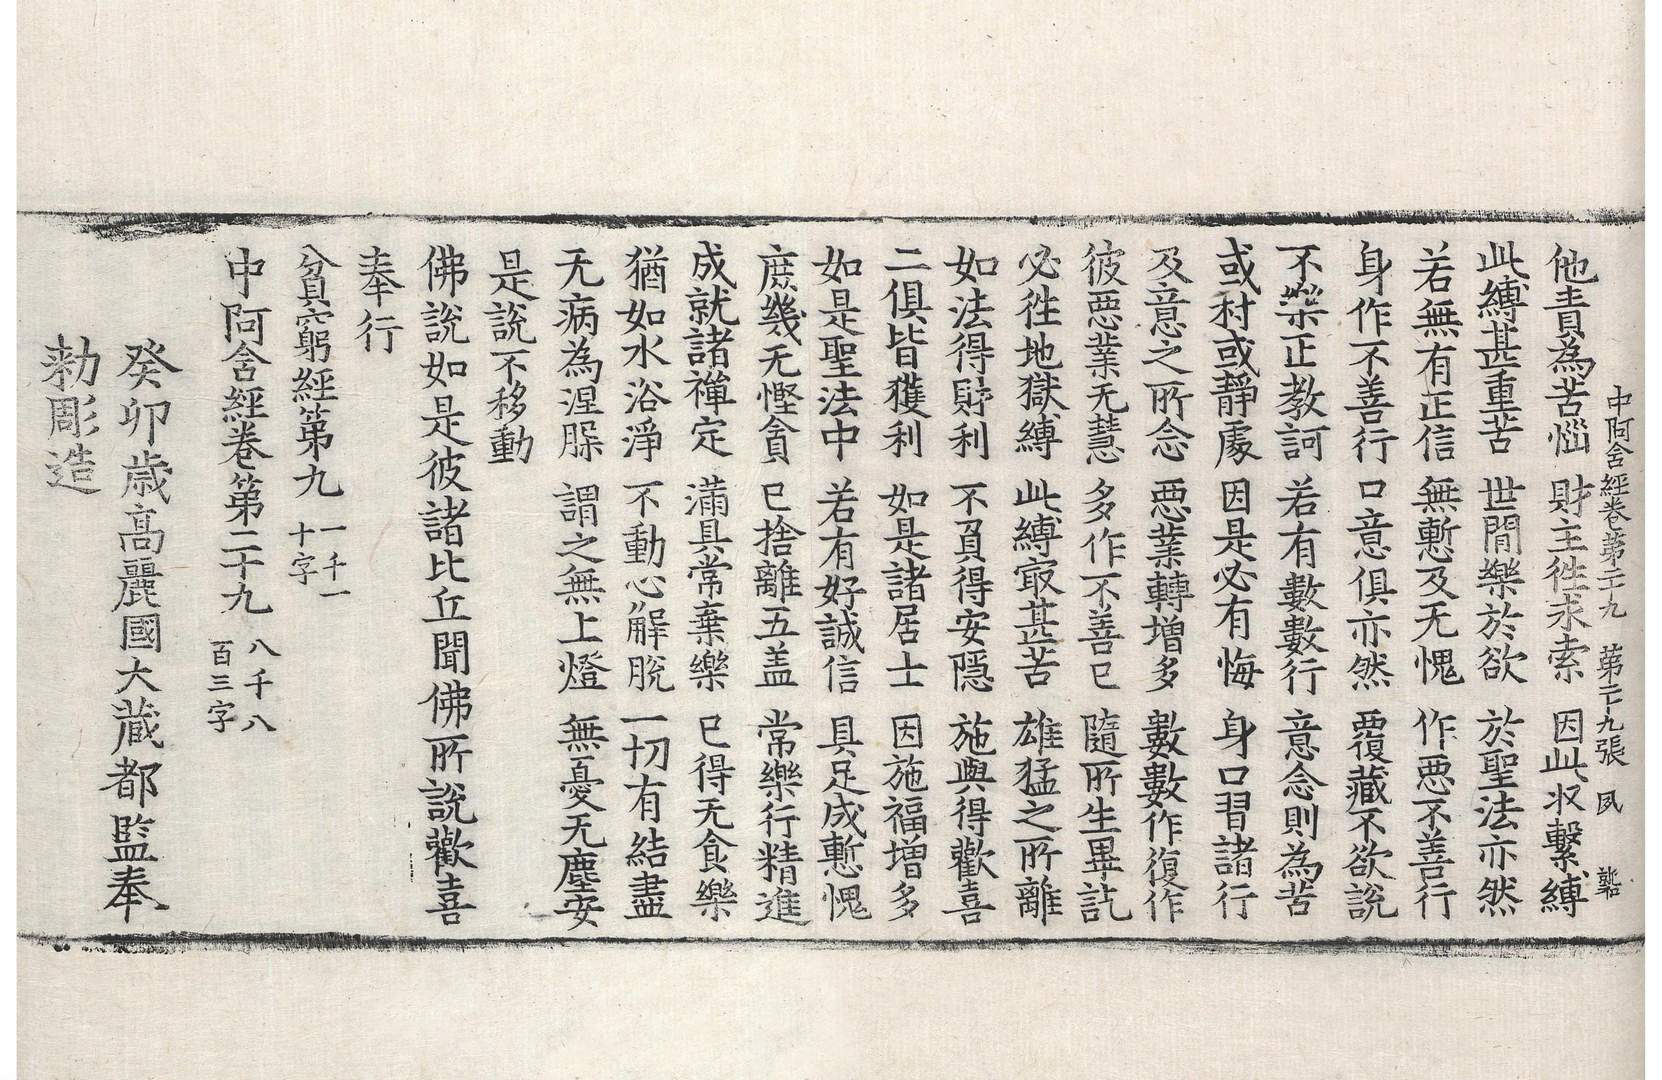 中阿含經卷第二十九 第二十九張 夙
他責為苦惱 財主往求索 因此收繫縛
此縛甚重苦 世間樂於欲 於聖法亦然
若無有正信 無慙及无愧 作惡不善行
身作不善行 口意俱亦然 覆藏不欲說
不樂正教訶 若有數數行 意念則為苦
或村或靜處 因是必有悔 身口習諸行
及意之所念 惡業轉增多 數數作復作
彼惡業无慧 多作不善已 隨所生畢訖
必往地獄縛 此縛冣甚苦 雄猛之所離
如法得財利 不負得安隱 施與得歡喜
二俱皆獲利 如是諸居士 因施福增多
如是聖法中 若有好誠信 具足成慙愧
庶幾无慳貪 已捨離五盖 常樂行精進
成就諸禪定 滿具常棄樂 已得无食樂
猶如水浴淨 不動心解脫 一切有結盡
无病為涅脲 謂之無上燈 無憂无塵安
是說不移動
佛說如是彼諸比丘聞佛所說歡喜
奉行
貧窮經第九 一千一十字
中阿含經卷第二十九 八千八百三字
癸卯歳髙麗國大蔵都監奉
勅彫造